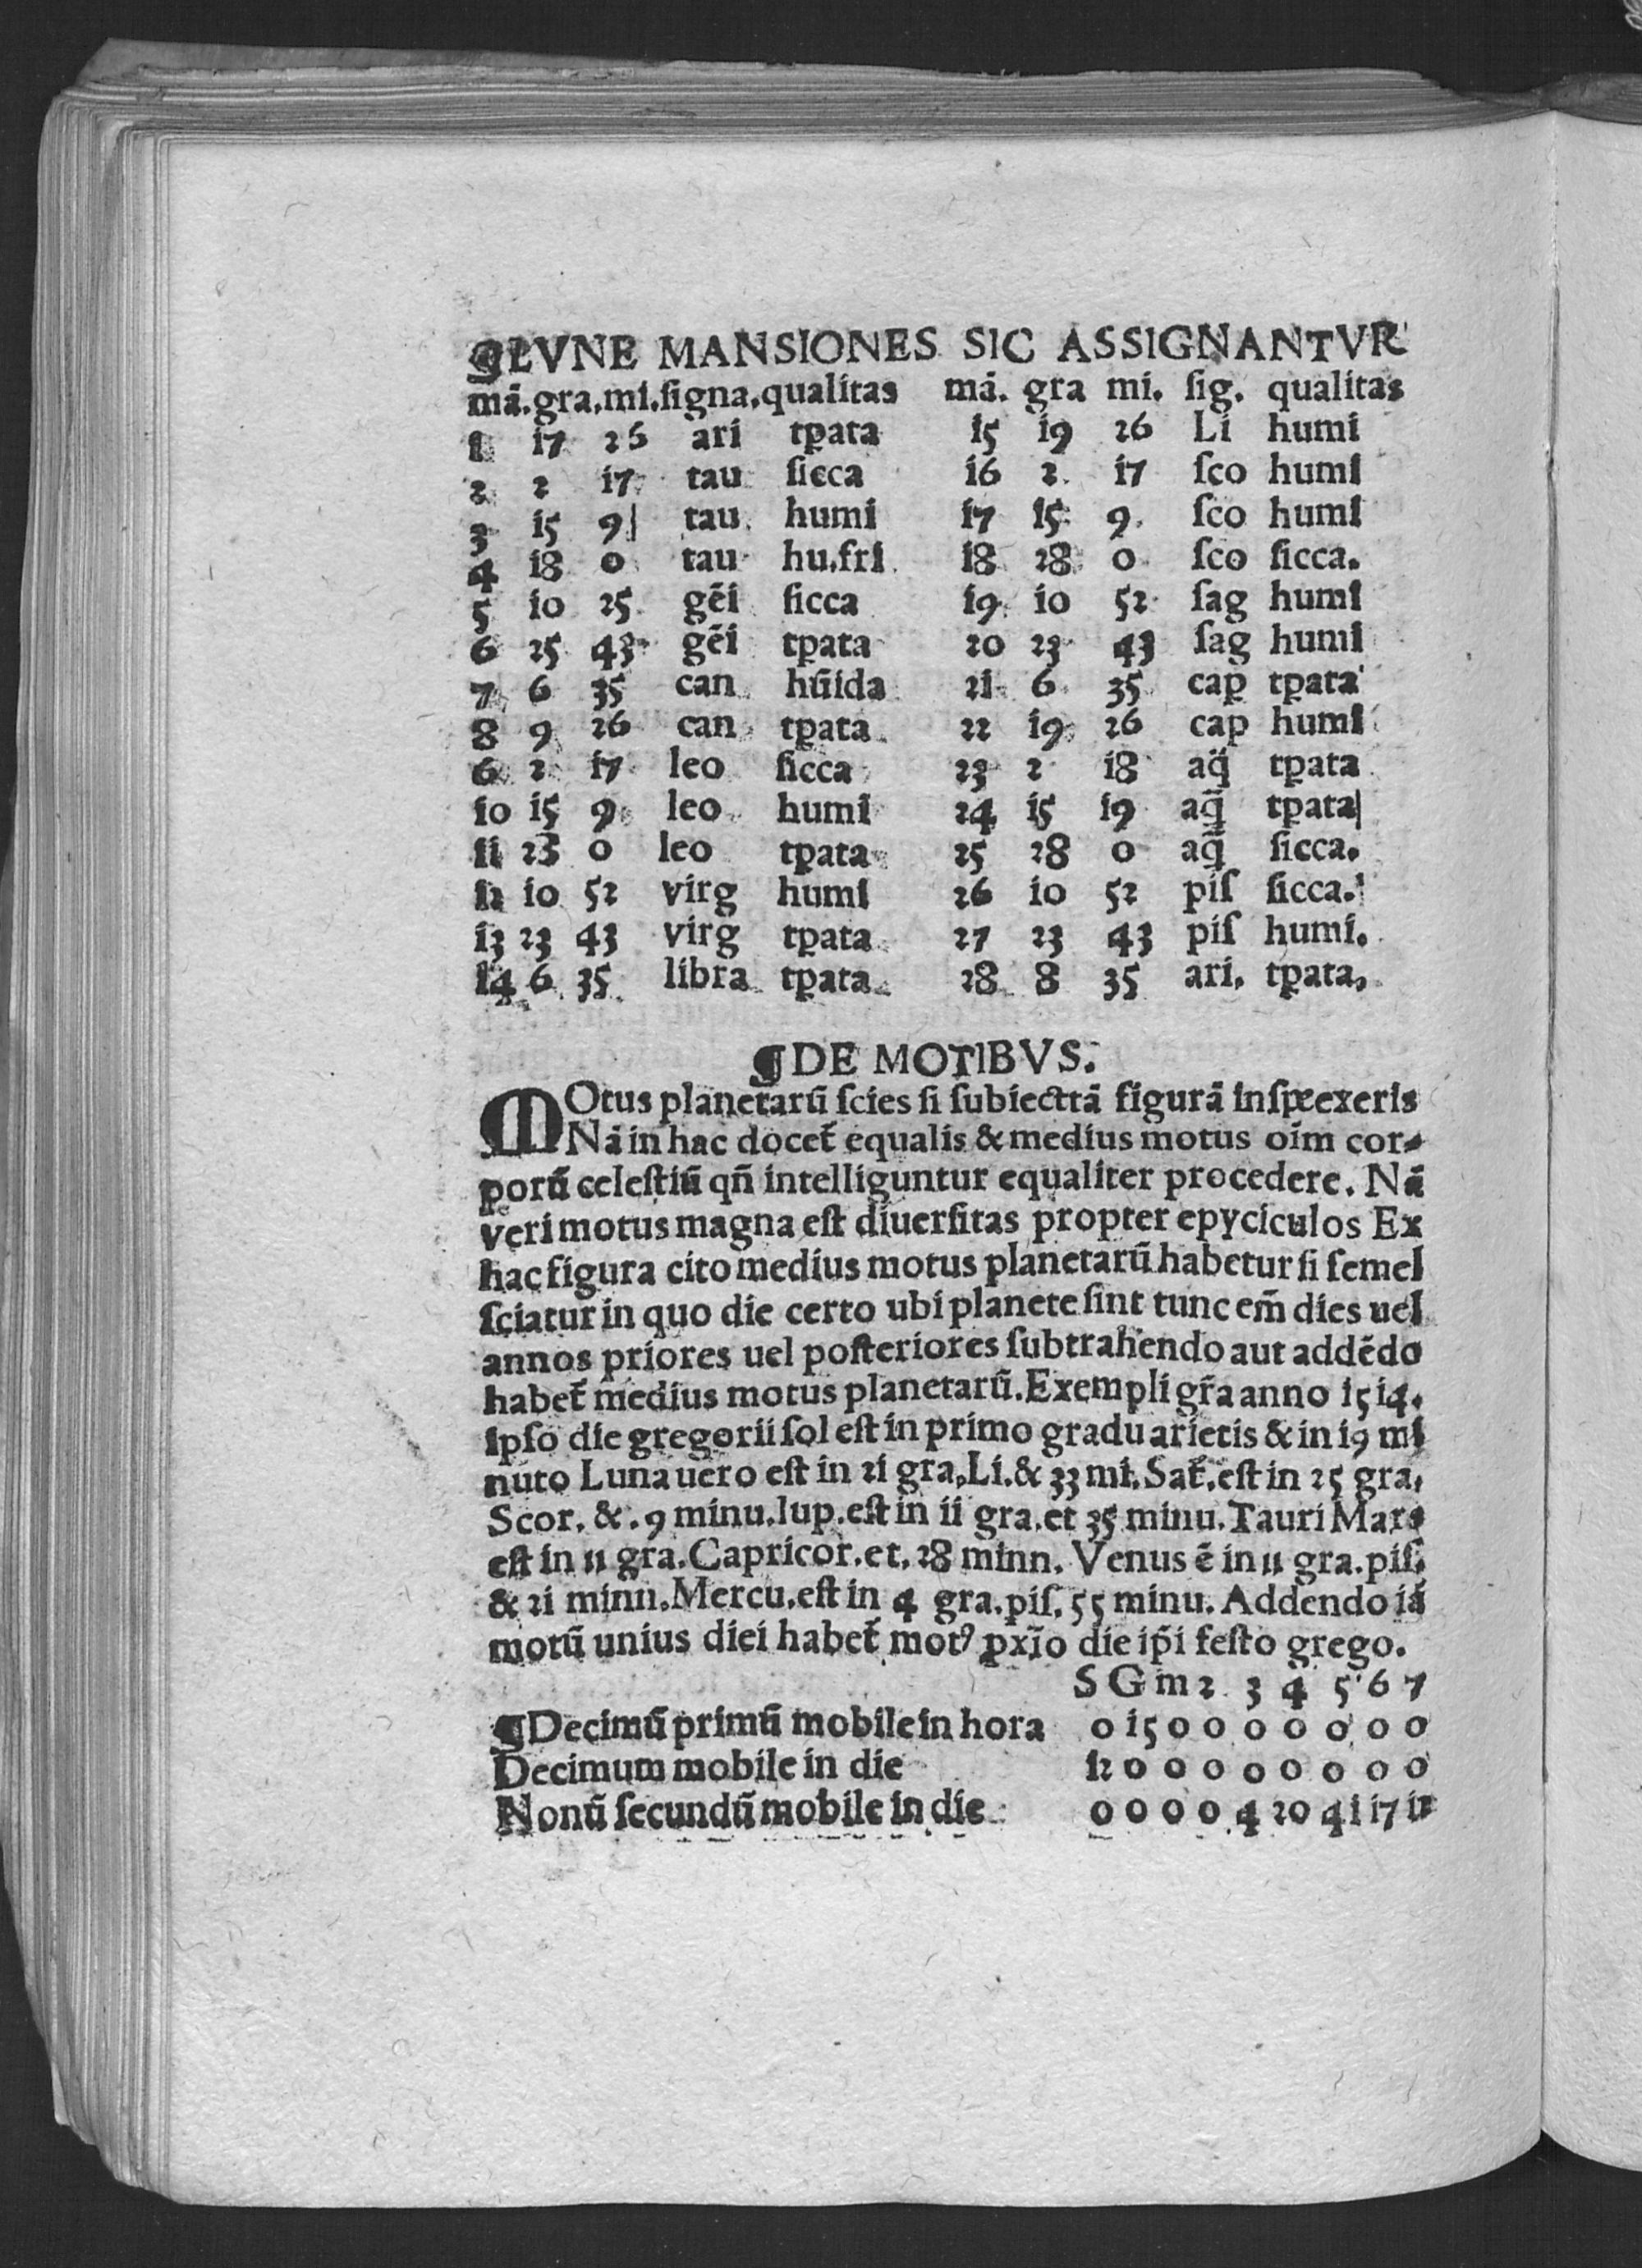 ¶LVNE MANSIONES SIC ASSIGNANTVR
mā.gra.mi.ſigna.qualitas mā. gra mi. ſig. qualitas
1 17 26 ari tꝑata 15 19 26 Li humi
2 2 17 tau ſicca 16 2 17 ſco humi
3 15 9 tau humi 17 15 9 ſco humi
4 18 0 tau hu.fri 18 28 0 ſco ſicca.
5 10 25 gēi ſicca 19 10 52 ſag humi
6 25 43 gēi tꝑata 20 23 43 ſag humi
7 6 35 can hūida 21 6 35 cap tꝑata
8 9 26 can tꝑata 22 19 26 cap humi
6 2 17 leo ſicca 23 2 18 aq̄ tꝑata
10 15 9 leo humi 24 15 19 aq̄ tꝑata
11 23 0 leo tꝑata 25 28 0 aq̄ ſicca.
12 10 52 virg humi 26 10 52 piſ ſicca.
13 23 43 virg tꝑata 27 23 43 piſ humi.
14 6 35 libra tꝑata 28 8 35 ari. tꝑata,
¶DE MOTIBVS.
MOtus planetarū ſcies ſi ſubiecttā figurā inſpexeris
Nā in hac docet᷑ equalis & medius motus oīm cor-
porū celeſtiū qñ intelliguntur equaliter procedere. Nā
veri motus magna eſt diuerſitas propter epyciculos Ex
hac figura cito medius motus planetarū habetur ſi ſemel
ſciatur in quo die certo ubi planete ſint tunc em̄ dies uel
annos priores uel poſteriores ſubtrahendo aut addēdo
habet᷑ medius motus planetarū. Exempli gr̄a anno 1514.
ipſo die gregorii ſol eſt in primo gradu arietis & in 19 mi
nuto Luna uero eſt in 21 gra,Li.& 33 mi. Sat᷑.eſt in 25 gra,
Scor. &. 9 minu.Iup.eſt in 11 gra.et 35 minu. Tauri Mars
eſt in 11 gra.Capricor.et. 28 minn. Venus ē in 11 gra.piſ.
& 21 minu.Mercu.eſt in 4 gra.piſ. 55 minu. Addendo iā
motū unius diei habet᷑ motꝰ ꝓxīo die ip̄i feſto grego.
S G m 2 3 4 5 6 7
¶Decimū primū mobile in hora 0 15 0 0 0 0 0 0 0
Decimum mobile in die 12 0 0 0 0 0 0 0 0
Nonū ſecundū mobile in die 0 0 0 0 4 20 41 17 12